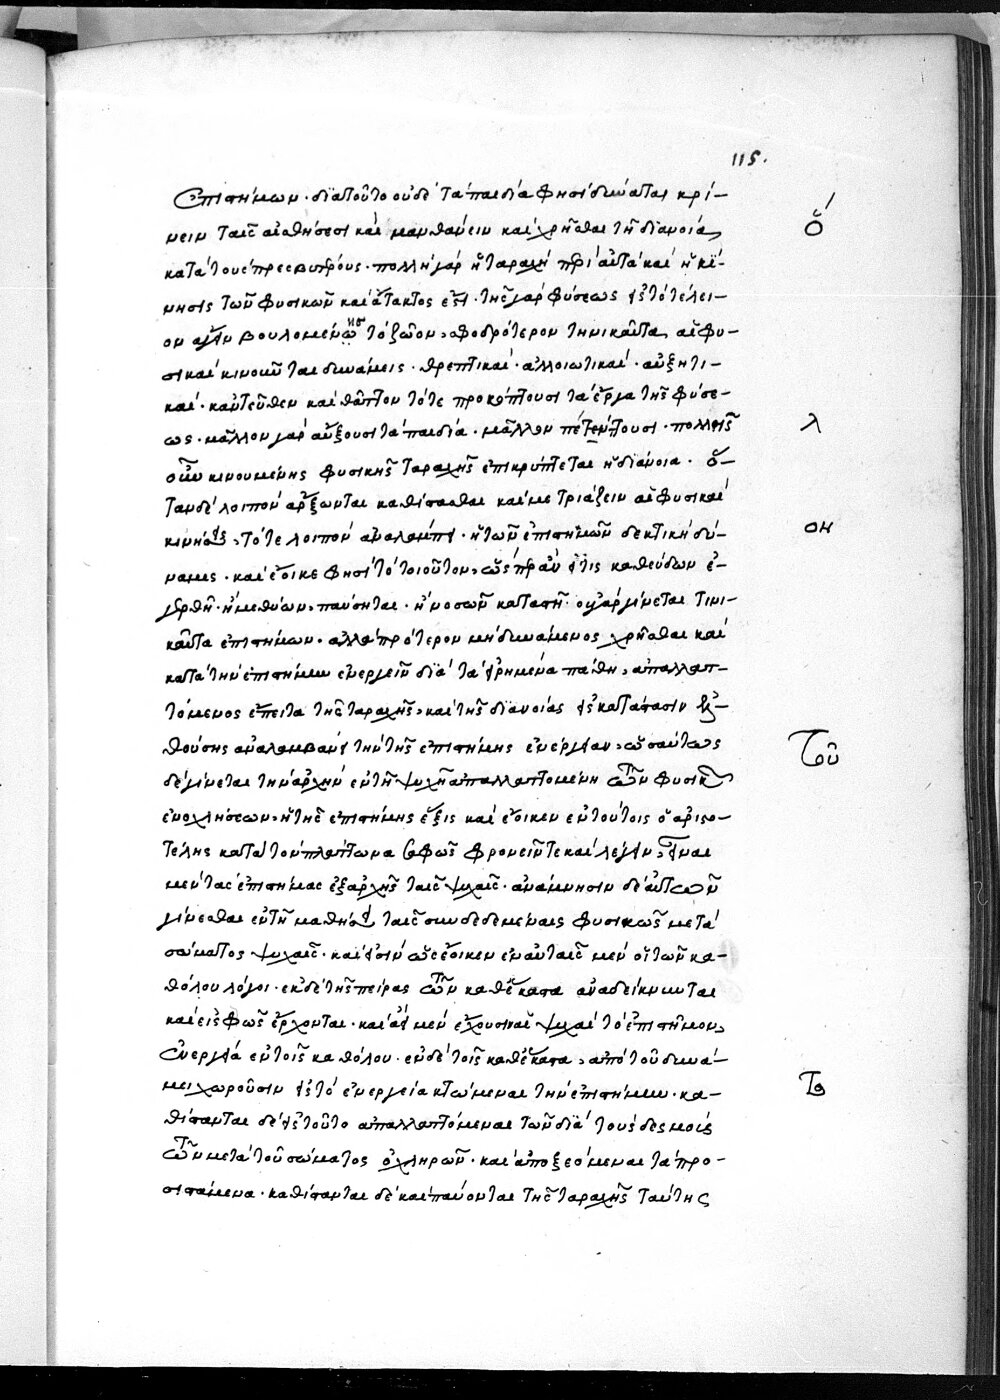 115.
ἐπιστήμων· διατοῦτο οὐδὲ τὰ παιδία φησὶ δύναται κρί-
νειν ταῖς αἰσθήσεσι καὶ μανθάνειν καὶ χρῆσθαι τῇ διανοίᾳ
κατὰ τοὺς πρεσβυτέρους· πολλὴ γὰρ ἡ ταραχὴ περὶ αὐτὰ καὶ ἡ κί-
νησις τῶν φυσικῶν καὶ ἄτακτος ἐστι· τῆς γὰρ φύσεως εἰς τὸ τέλει-
ον ἄγειν βουλομένης τὸ ζῶον, σφοδρότερον τηνικαῦτα αἱ φυ-
σικαὶ κινοῦνται δυνάμεις· θρεπτικαὶ· ἀλλοιωτικαὶ· αὐξητι-
καὶ· κἀντεῦθεν καὶ θᾶττον τότε προκόπτουσι τὰ ἔργα τῆς φύσε-
ως· μᾶλλον γὰρ αὔξουσι τὰ παιδία· μᾶλλον πέττουσι· πολλῆς
οὖν κινουμένης φυσικῆς ταραχῆς ἐπικρύπτεται ἡ διάνοια· ὅ-
ταν δὲ λοιπὸν ἄρξωνται καθίστασθαι καὶ μετριάζειν αἱ φυσικαὶ
κινήσεις, τότε λοιπὸν ἀναλάμπει· ἡ τῶν ἐπιστημῶν δεκτικὴ δύ-
ναμις· καὶ ἔοικε φησὶ τὸ τοιοῦτον, ὥσπερ ἂν εἴ τις καθεύδων ἐ-
γερθῇ· ἢ μεθύων, παύσηται· ἢ νοσῶν καταστῇ· οὐ γὰρ γίνεται τηνι-
καῦτα ἐπιστήμων· ἀλλὰ πρότερον μὴ δυνάμενος χρῆσθαι καὶ
κατὰ τὴν ἐπιστήμην ἐνεργεῖν διὰ τὰ εἰρημένα πάθη, ἀπαλλατ-
τόμενος ἔπειτα τῆς ταραχῆς, καὶ τῆς διανοίας εἰς κατάστασιν ἐλ-
θούσης ἀναλαμβάνει τὴν τῆς ἐπιστήμης ἐνέργειαν, ὡσαύτως
δὲ γίνεται τὴν ἀρχὴν ἐν τῇ ψυχῇ ἀπαλλαττομένη τῶν φυσικῶν
ἐνοχλήσεων, ἡ τῆς ἐπιστήμης ἕξις καὶ ἔοικεν ἐν τούτοις ὁ ἀριστο-
τέλης κατὰ τὸν πλάτωνα σαφῶς φρονεῖν τε καὶ λέγειν, εἶναι
μὲν τὰς ἐπιστήμας ἐξαρχῆς ταῖς ψυχαῖς· ἀνάμνησιν δὲ αὐτῶν
γίνεσθαι ἐν τῇ μαθήσει ταῖς συνδεδεμέναις φυσικῶς μετὰ
σώματος ψυχαῖς· καὶ εἰσὶν ὡς ἔοικεν ἐν αὐταῖς μὲν οἱ τῶν κα-
θόλου λόγοι· ἐκ δὲ τῆς πείρας τῶν καθέκαστα ἀναδείκνυνται
καὶ εἰς φῶς ἔρχονται· καὶ ἀεὶ μὲν ἔχουσι καὶ ψυχαὶ τὸ ἐπιστῆμον,
ἐνεργείᾳ ἐν τοῖς καθόλου· ἐν δὲ τοῖς καθέκαστα, ἀπὸ τοῦ δυνά-
μει χωροῦσιν εἰς τὸ ἐνεργείᾳ κτώμεναι τὴν ἐπιστήμην· κα-
θίστανται δὲ εἰς τοῦτο ἀπαλλαττόμεναι τῶν διὰ τοὺς δεσμοὺς
τῶν μετὰ τοῦ σώματος ὀχληρῶν· καὶ ἀποξεόμεναι τὰ προ-
σιστάμενα· καθίστανται δὲ καὶ παύονται τῆς ταραχῆς ταύτης
ὅ
λ
ον
τοῦ
το